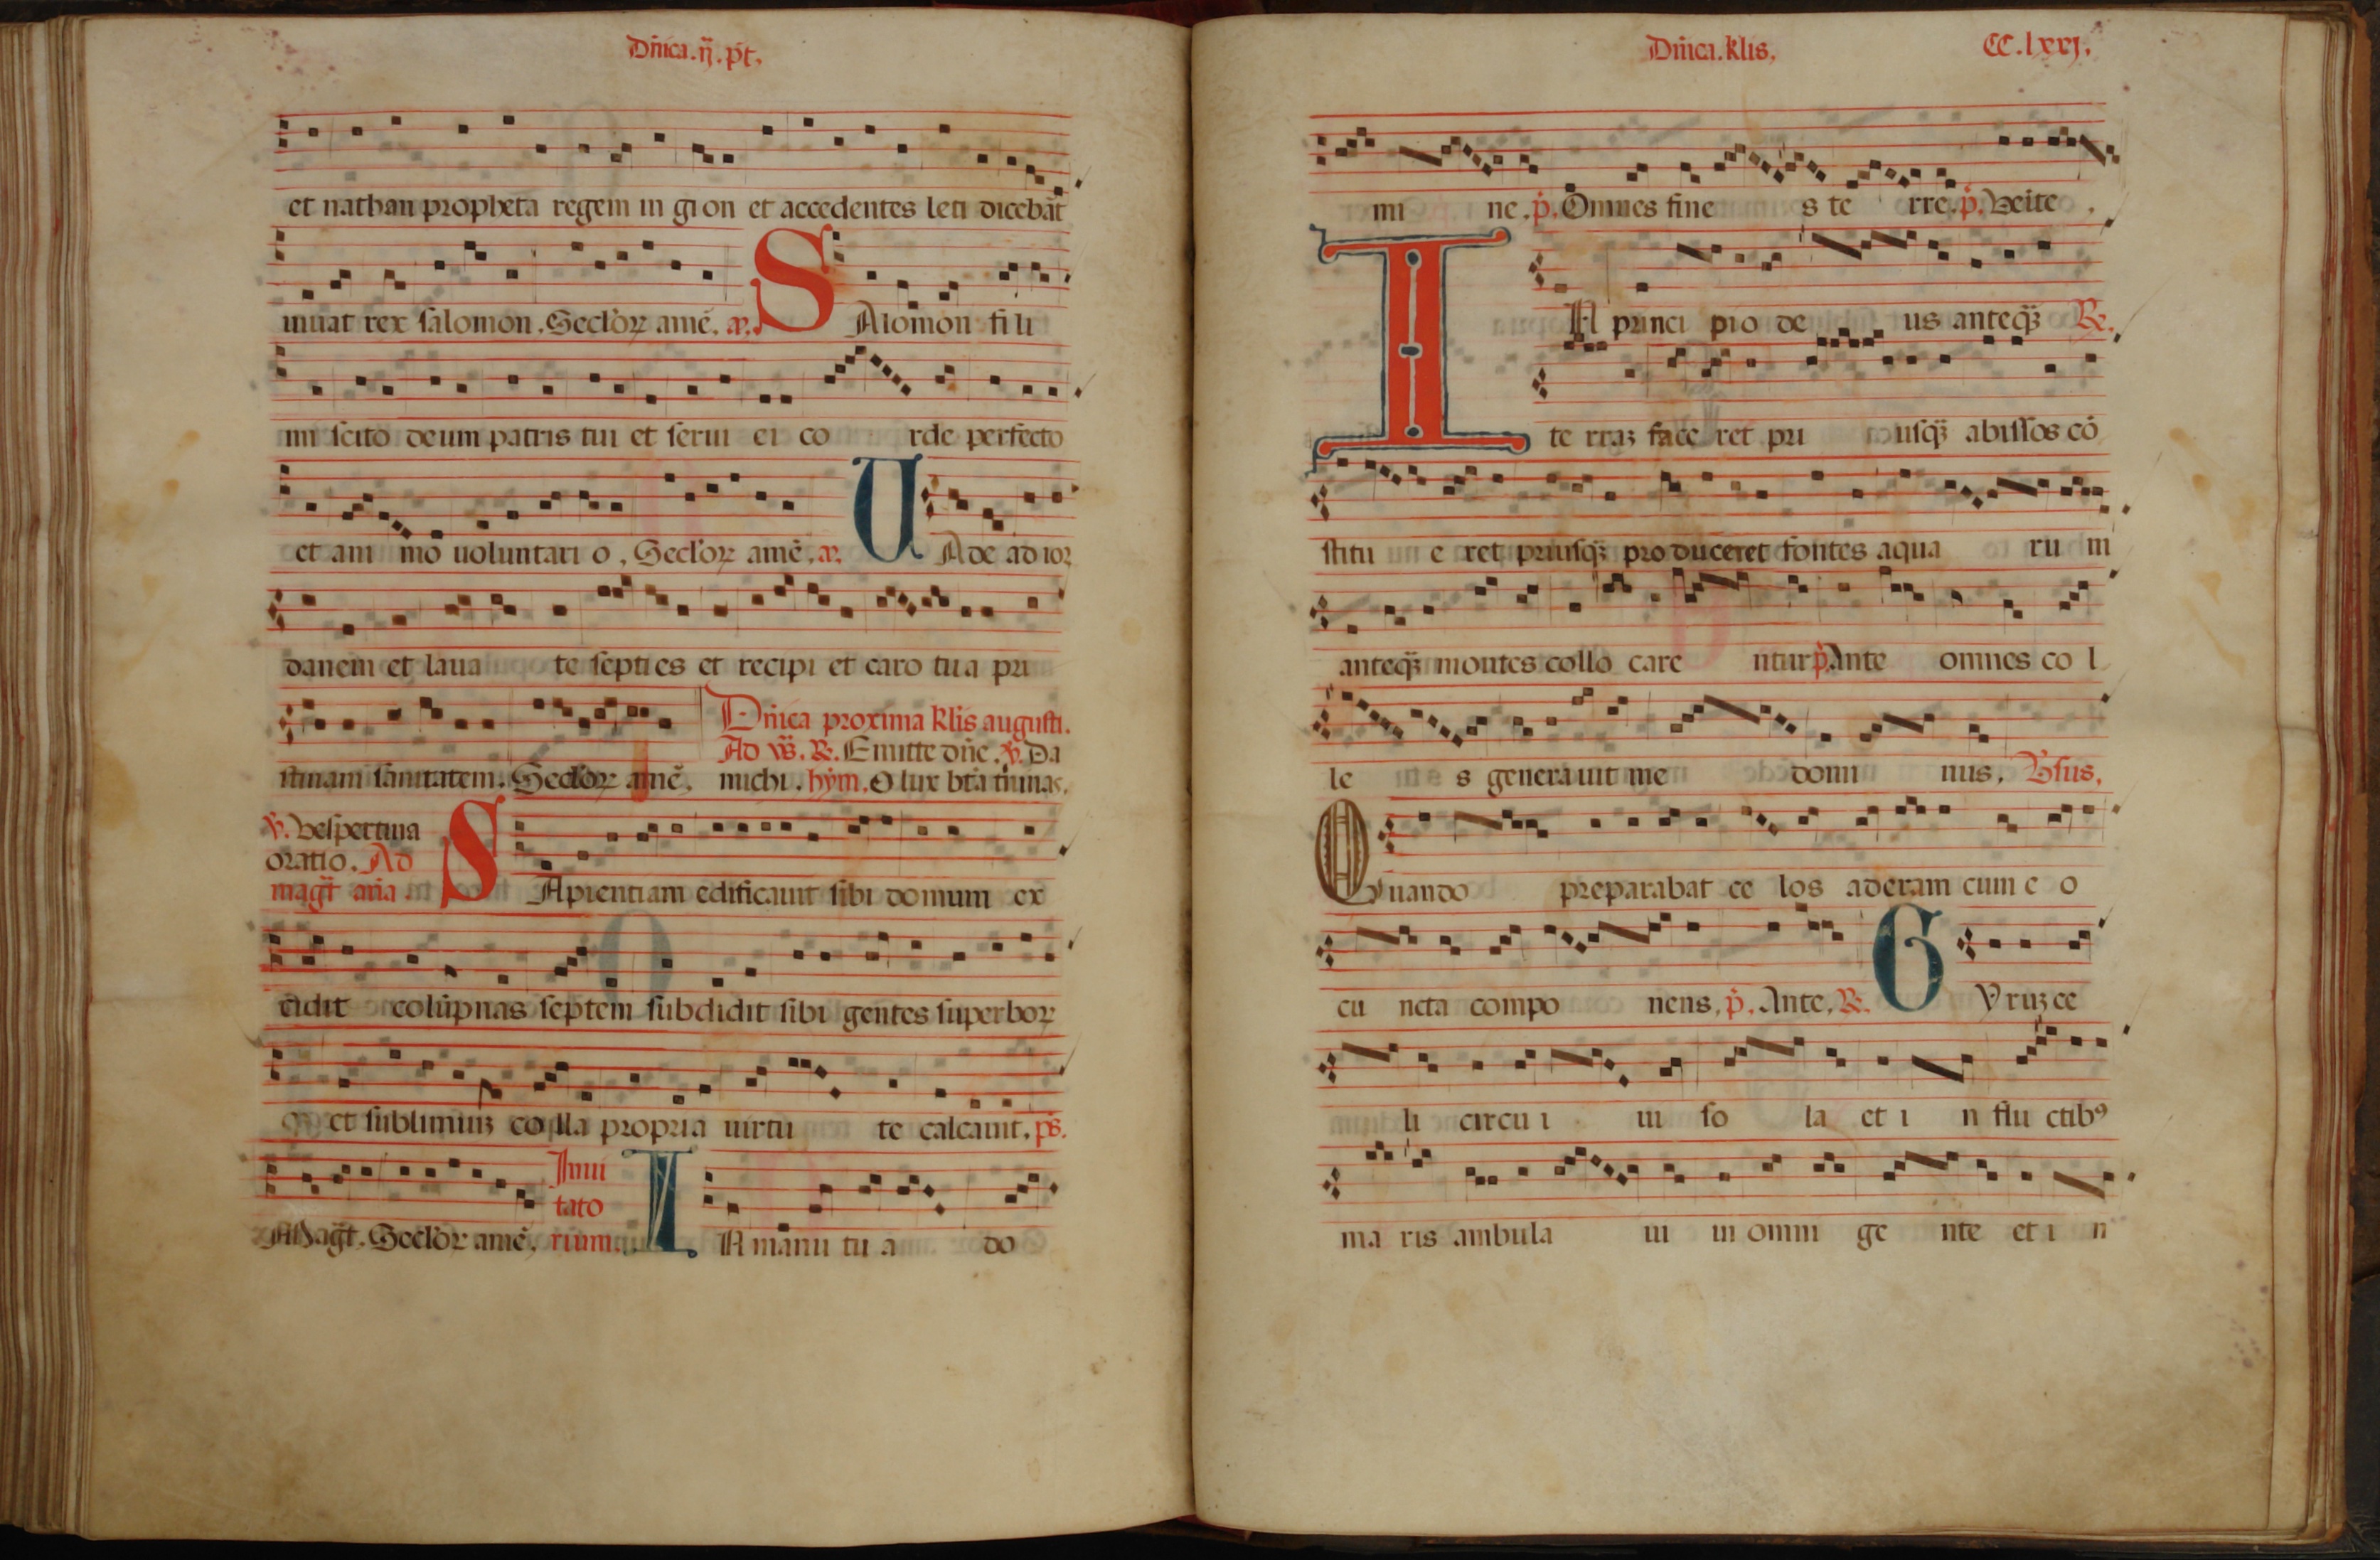 Dñica.ij.pt.
et nathan propheta regem in gi on et accedentes leti dicebãt
uiuat rex salomon. Seclorꝝ amẽ. aͣ. S Alomon fi li
mi scito deum patris tui et serui ei co rde perfecto
et ani mo uoluntari o. Seclorꝝ amẽ. aͣ. U Ade ad ior
danem et laua te septi es et recipi et caro tu a pri
stinam sanitatem. Seclorꝝ amẽ.
Dñica proxima klis augusti.
Ad vs̃. ℞. Emitte dñe. ℣. Da
michi. hym. O lux bta trinitas.
℣. Vespertina
oratio. Ad
magt̃ aña
S Apientiam edificauit sibi domum ex
cidit colũpnas septem subdidit sibi gentes superborꝝ
et sublimiuꝫ co lla propria uirtu te calcauit. ps̃.
Magt̃. Seclorꝝ amẽ.
Inui
tato
rium.
I N manu tu a do
Dñica. klis. CC.lxxj.
mi ne. p̃. Omnes fine s te rre. p̃. Veĩte
I N princi pio de us anteqꝫ ℞.
te rraꝫ face ret pri usqꝫ abissos cõ
stitu e ret priusqꝫ pro duceret fontes aqua ru m
anteqꝫ montes collo care ntur p̃. Ante omnes co l
le s generauit me domi nus. Vsus.
Quando preparabat ce los aderam cum e o
cu ncta compo nens. p̃. Ante. ℞. G Yruꝫ ce
li circu i ui so la et i n flu ctibꝰ
ma ris ambula ui in omni ge nte et i n